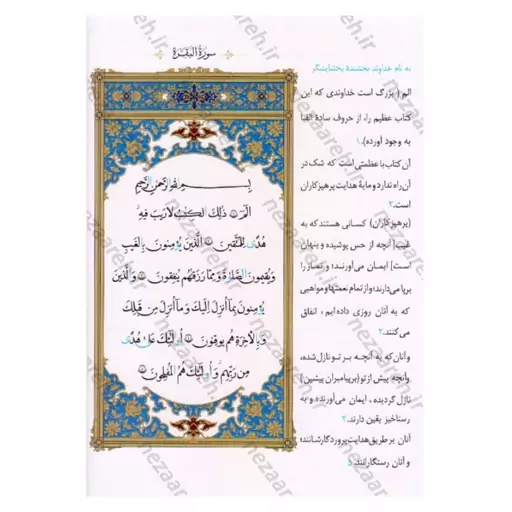 سورة البقرة
بِسْمِ اللَّهِ الرَّحْمٰنِ الرَّحِيمِ
الٓمٓ ۝١ ذٰلِكَ الْكِتٰبُ لَا رَيْبَ فِيهِ
هُدًى لِلْمُتَّقِينَ ۝٢ الَّذِينَ يُؤْمِنُونَ بِالْغَيْبِ
وَيُقِيمُونَ الصَّلٰوةَ وَمِمَّا رَزَقْنٰهُمْ يُنْفِقُونَ ۝٣ وَالَّذِينَ
يُؤْمِنُونَ بِمَا أُنْزِلَ إِلَيْكَ وَمَا أُنْزِلَ مِنْ قَبْلِكَ
وَبِالْاٰخِرَةِ هُمْ يُوقِنُونَ ۝٤ أُولٰئِكَ عَلٰى هُدًى
مِنْ رَبِّهِمْ وَأُولٰئِكَ هُمُ الْمُفْلِحُونَ ۝٥
به نام خداوند بخشندهٔ بخشایشگر
الم ( بزرگ است خداوندی که این
کتاب عظیم را، از حروف سادهٔ الفبا
به وجود آورده). ۱
آن کتاب با عظمتی است که شک در
آن راه ندارد و مایهٔ هدایت پرهیزکاران
است. ۲
(پرهیزکاران) کسانی هستند که به
غیب [آنچه از حس پوشیده و پنهان
است] ایمان می‌آورند؛ و نماز را
برپا می‌دارند؛ و از تمام نعمتها و مواهبی
که به آنان روزی داده‌ایم، انفاق
می‌کنند. ۳
و آنان که به آنچه بر تو نازل شده،
و آنچه پیش از تو (بر پیامبران پیشین)
نازل گردیده، ایمان می‌آورند؛ و به
رستاخیز یقین دارند. ۴
آنان بر طریق هدایت پروردگارشانند؛
و آنان رستگارانند. ۵
nezaareh.ir